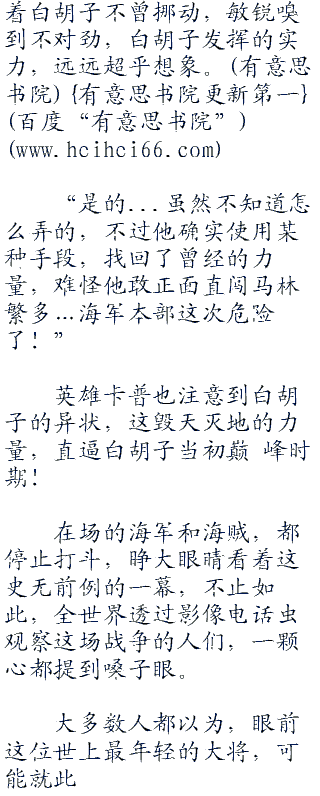 着白胡子不曾挪动，敏锐嗅
到不对劲，白胡子发挥的实
力，远远超乎想象。(有意思
书院) {有意思书院更新第一}
(百度“有意思书院”)
(www.hcihci66.com)
“是的...虽然不知道怎
么弄的，不过他确实使用某
种手段，找回了曾经的力
量，难怪他敢正面直闯马林
繁多...海军本部这次危险
了！”
英雄卡普也注意到白胡
子的异状，这毁天灭地的力
量，直逼白胡子当初巅 峰时
期！
在场的海军和海贼，都
停止打斗，睁大眼睛看着这
史无前例的一幕，不止如
此，全世界透过影像电话虫
观察这场战争的人们，一颗
心都提到嗓子眼。
大多数人都以为，眼前
这位世上最年轻的大将，可
能就此